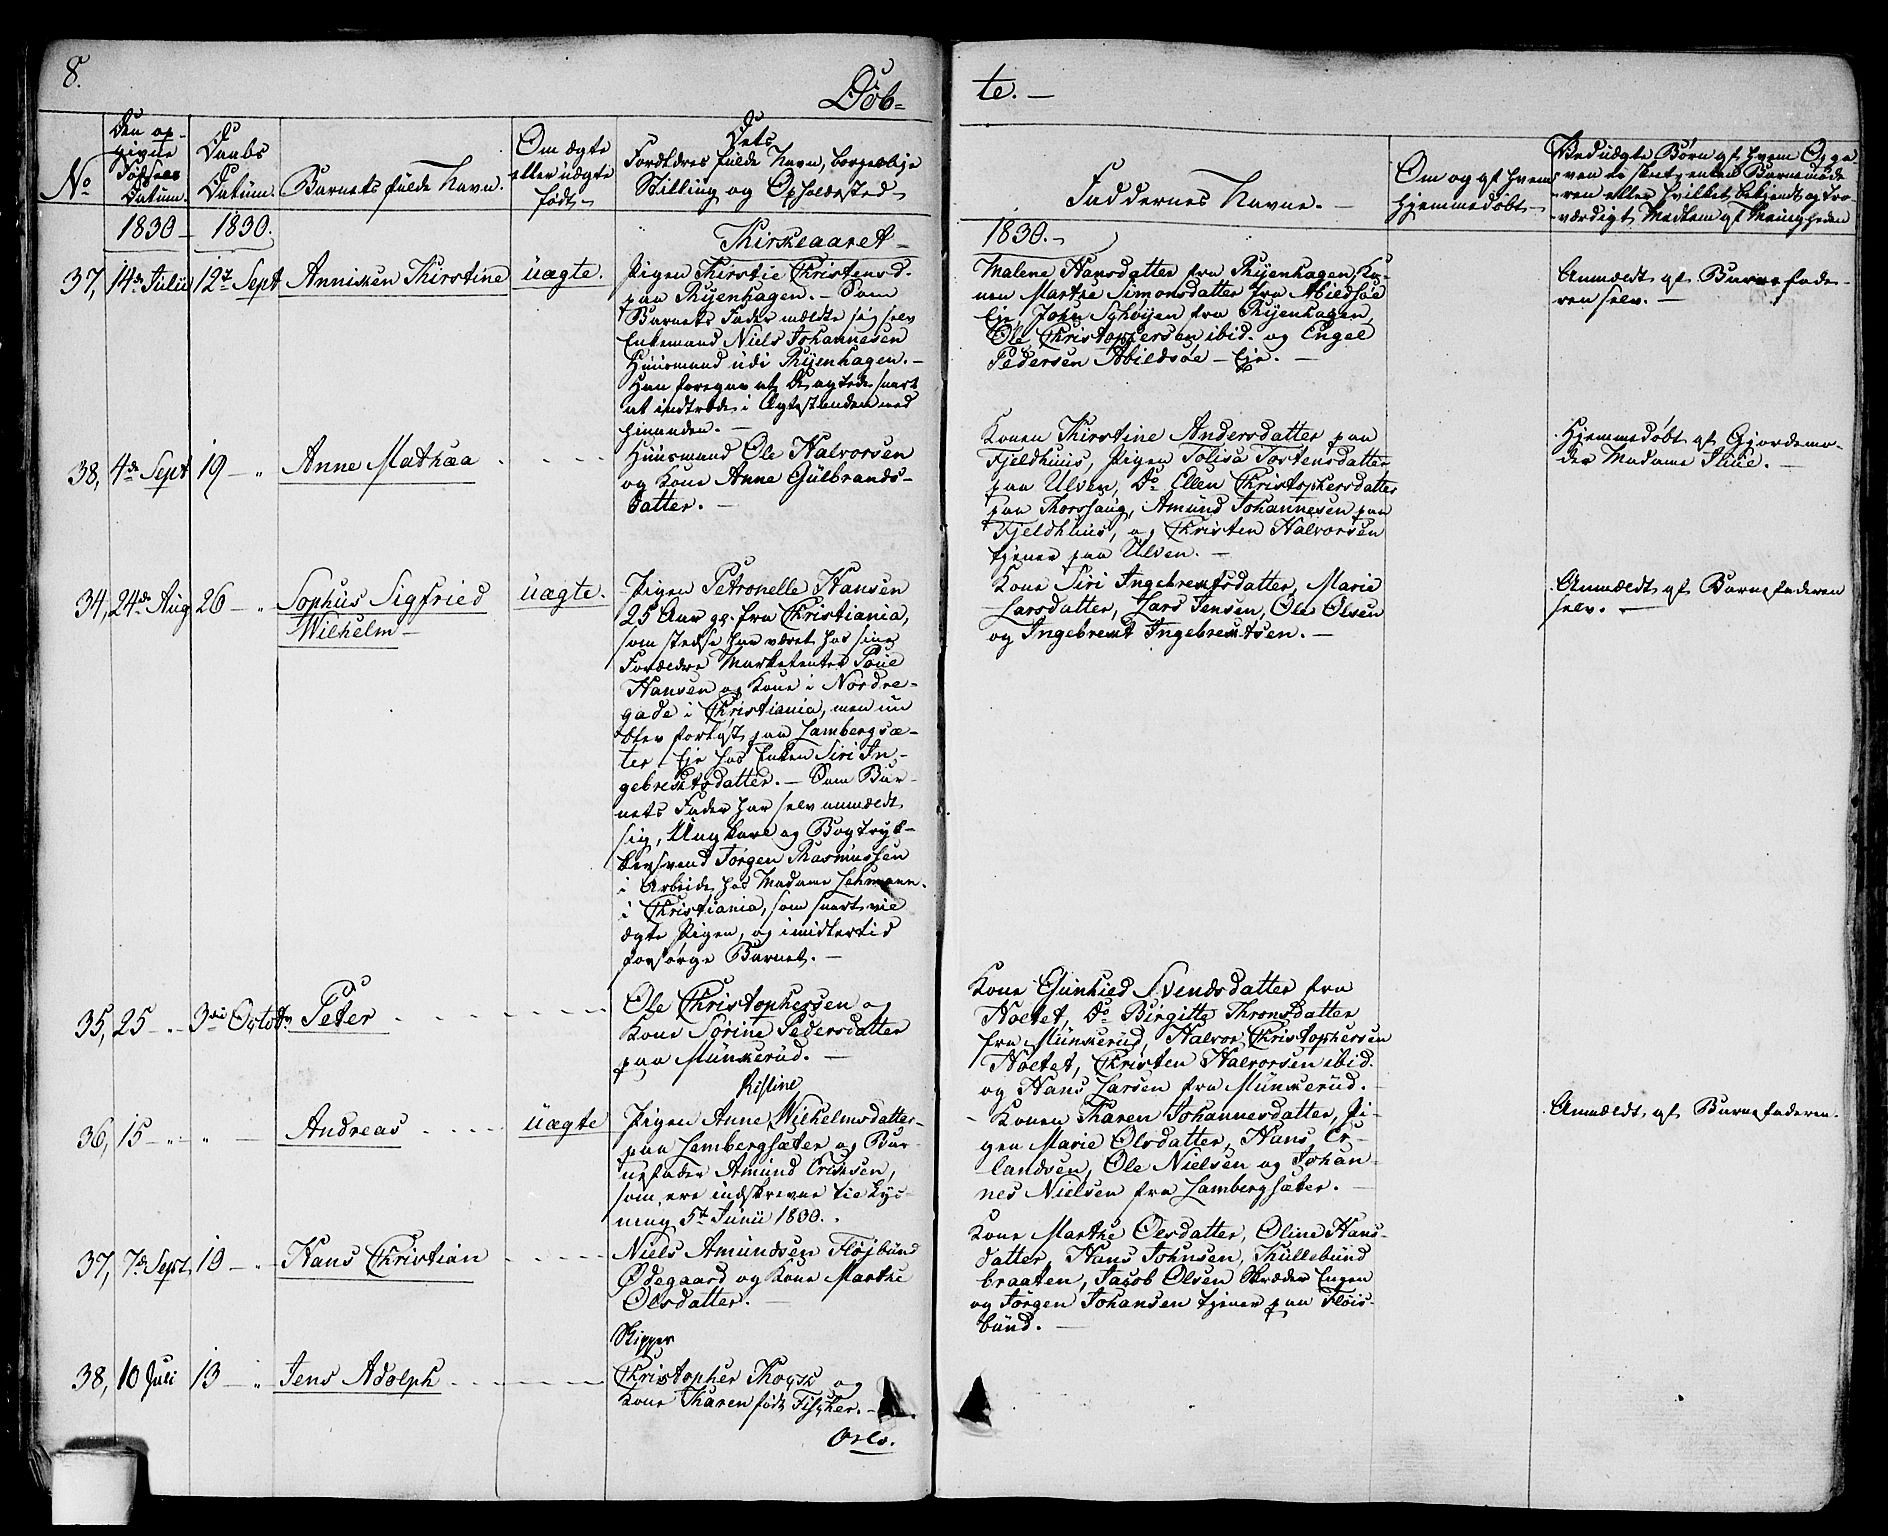 8.
Döb-
te. -
No
Den op-
givne
Fødsels
Datum.
Daabs
Datum.
Barnets fulde Navn.
Om ægte
eller uægte
født.
Dets
Forældres fulde Navn, borgerlige
Stilling og Opholdssted
Faddernes Navne. -
Om og af hvem
hjemmedøbt
Ved uægte Børn af hvem Opga-
ven er skeet, enten Barnemode-
ren eller hvilket bekjendt og tro-
værdigt Medlem af Menigheden
1830 -
1830.
Kirkeaaret -
1830. -
37, 14de Julii 12te Sept Annichen Kirstine uægte.
Pigen Kirstie Christensd.
paa Ryenhagen. - Som
Barnets Fader meldte sig selv
Enkemand Niels Johannesen
Huusmand udi Ryenhagen. -
Han foregav at de agtede snart
at indtræde i Ægtestanden med
hinanden. -
Malene Hansdatter fra Ryenhagen, Ko-
nen Marthe Simonsdatter fra Abildsøe
Eje, John Schøijen fra Ryenhagen,
Ole Christophersen ibid. og Engel
Pedersen Abildsøe - Eje. -
Anmældt af Barnefade-
ren selv. -
38, 4de Sept 19 - " Anne Mathea
Huusmand Ole Halvorsen
og Kone Anne Gulbrands-
datter. -
Konen Kirstine Andersdatter paa
Fjeldhuus, Pigen Tolisa Tostensdatter
paa Ulven, Do Ellen Christophersdatter
paa Thorshaug, Amund Johannesen paa
Fjeldhuus, og Christen Halvorsen
tjener paa Ulven. -
Hjemmedøbt af Gjordemo-
der Madame Thue. -
34, 24de Aug 26 - " Sophus Sigfried
Wilhelm -
uægte.
Pigen Petronelle Hansen
25 Aar gl. fra Christiania,
som stedse har været hos sine
Forældre Marketenter Poul
Hansen og Kone i Nordre-
gade i Christiania, men nu
blev forløst paa Lambergsæ-
ter Eje hos Enken Siri In-
gebretsdatter. - Som Bar-
nets Fader har selv anmeldt
sig, Ungkarl og Bogtryk-
kersvend Jørgen Rasmussen
i Arbeide hos Madame Lehmann
i Christiania, som snart vil
ægte Pigen, og imidlertid
forsørge Barnet. -
Kone Siri Ingebretsdatter, Marie
Larsdatter, Lars Jensen, Ole Olsen
og Ingebret Ingebretsen. -
Anmældt af Barnefaderen
selv. -
35, 25 - " 3die Octobr Peter
Ole Christophersen og
Kone Sørine Pedersdatter
paa Munkerud. -
Kone Gunhild Svendsdatter fra
Holtet, Do Birgitte Thronsdatter
fra Munkerud, Halvor Christophersen
Holtet, Christen Halvorsen ibid.
og Hans Larsen fra Munkerud. -
36, 15 - " " - Andreas
uægte
Kistine
Pigen Anne Wilhelmsdatter
paa Lambergsæter og Bar-
nefader Amund Erichsen,
som ere indskrevne til Lys-
ning 5te Junii 1830.
- Konen Karen Johannesdatter, Pi-
gen Marie Olsdatter, Hans Er-
landsen, Ole Nielsen og Johan-
nes Nielsen fra Lambergsæter. -
Anmældt af Barnefaderen.
37, 7de Sept 19 - " Hans Christian
Niels Amundsen Fløjsbund
Ødegaard og Kone Marthe
Olsdatter. -
Kone Marthe Olsdatter, Oline Hans-
datter, Hans Johnsen, Kullebund
braaten, Jacob Olsen Skræder Engen
og Jørgen Johansen tjener paa Fløis-
bund. -
38, 10 Juli 13 - " Jens Adolph
Skipper
Christopher
og
Kone Karen født Fischer. -
Oslo.